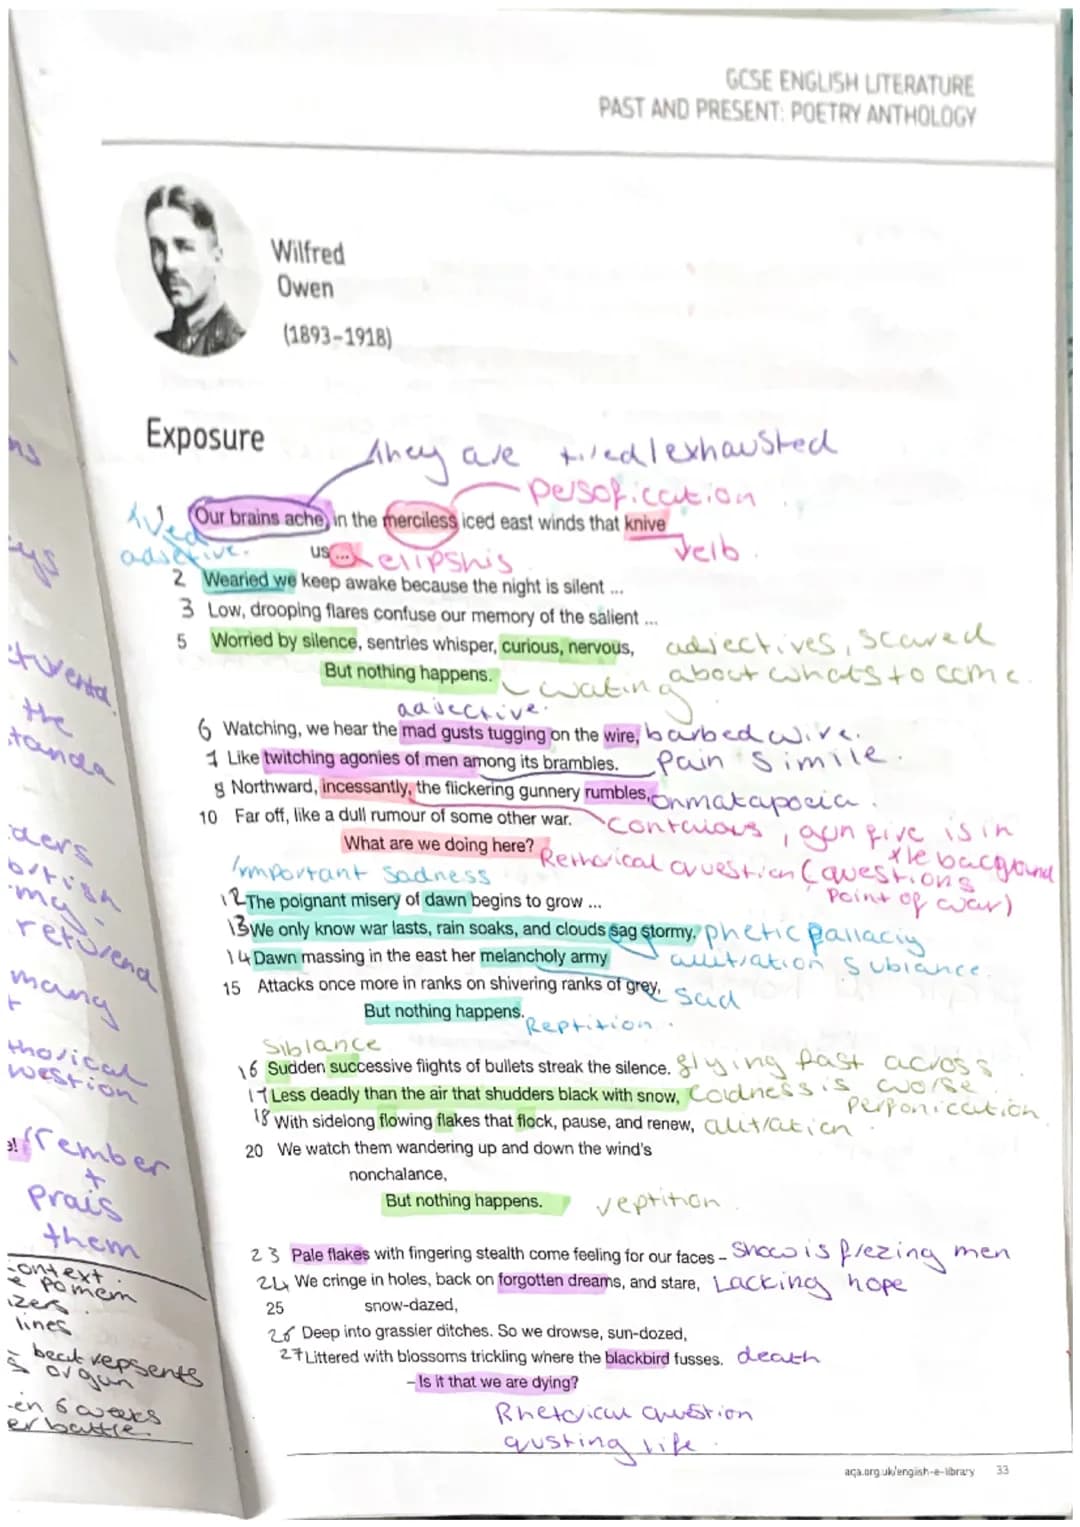 GCSE ENGLISH LITERATURE
PAST AND PRESENT: POETRY ANTHOLOGY
Wilfred
Owen
(1893–1918)
Exposure
they are tired/exhausted
persofication
1 Our brains ache, in the merciless iced east winds that knive
adjective.
us ...
elipshis
verb.
2 Wearied we keep awake because the night is silent ...
3 Low, drooping flares confuse our memory of the salient ...
5 Worried by silence, sentries whisper, curious, nervous, adjectives, scared
But nothing happens. wating about whats to come.
adjective.
6 Watching, we hear the mad gusts tugging on the wire, barbed wire.
7 Like twitching agonies of men among its brambles. Pain simile.
8 Northward, incessantly, the flickering gunnery rumbles, onmatapoeia.
10 Far off, like a dull rumour of some other war. contiuious, gun fire is in
the bacground
What are we doing here? Rethorical question (questions
point of war)
Important sadness
12 The poignant misery of dawn begins to grow ...
13 We only know war lasts, rain soaks, and clouds sag stormy. phetic fallaciy
14 Dawn massing in the east her melancholy army allitration sublance.
15 Attacks once more in ranks on shivering ranks of grey, sad
But nothing happens.
Reptition.
Siblance
16 Sudden successive flights of bullets streak the silence. flying past across
17 Less deadly than the air that shudders black with snow, Coldness is worse
perfoniccation
18 With sidelong flowing flakes that flock, pause, and renew, alitration.
20 We watch them wandering up and down the wind's
nonchalance,
But nothing happens. reptition
23 Pale flakes with fingering stealth come feeling for our faces – Snow is frezing men
24 We cringe in holes, back on forgotten dreams, and stare, Lacking hope
25 snow-dazed,
26 Deep into grassier ditches. So we drowse, sun-dozed,
27 Littered with blossoms trickling where the blackbird fusses. death
– Is it that we are dying?
Rhetorical question
qusting life.
aqa.org.uk/english-e-library 33
the
mang
rember
+
prais
them
context.
pomem
lines
beat repsents
orgun
in 6 weeks
battle.